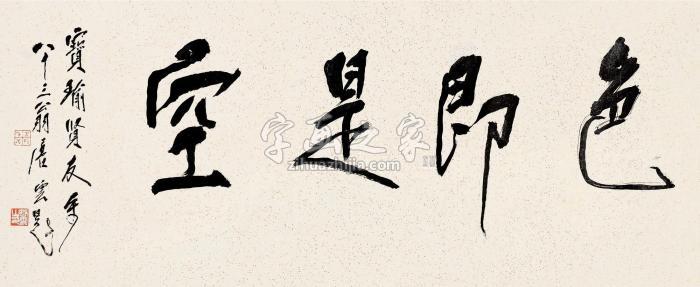 色即是空
寶瑜賢友属
八十三翁唐雲題
字画之家
zihuazhijia.com